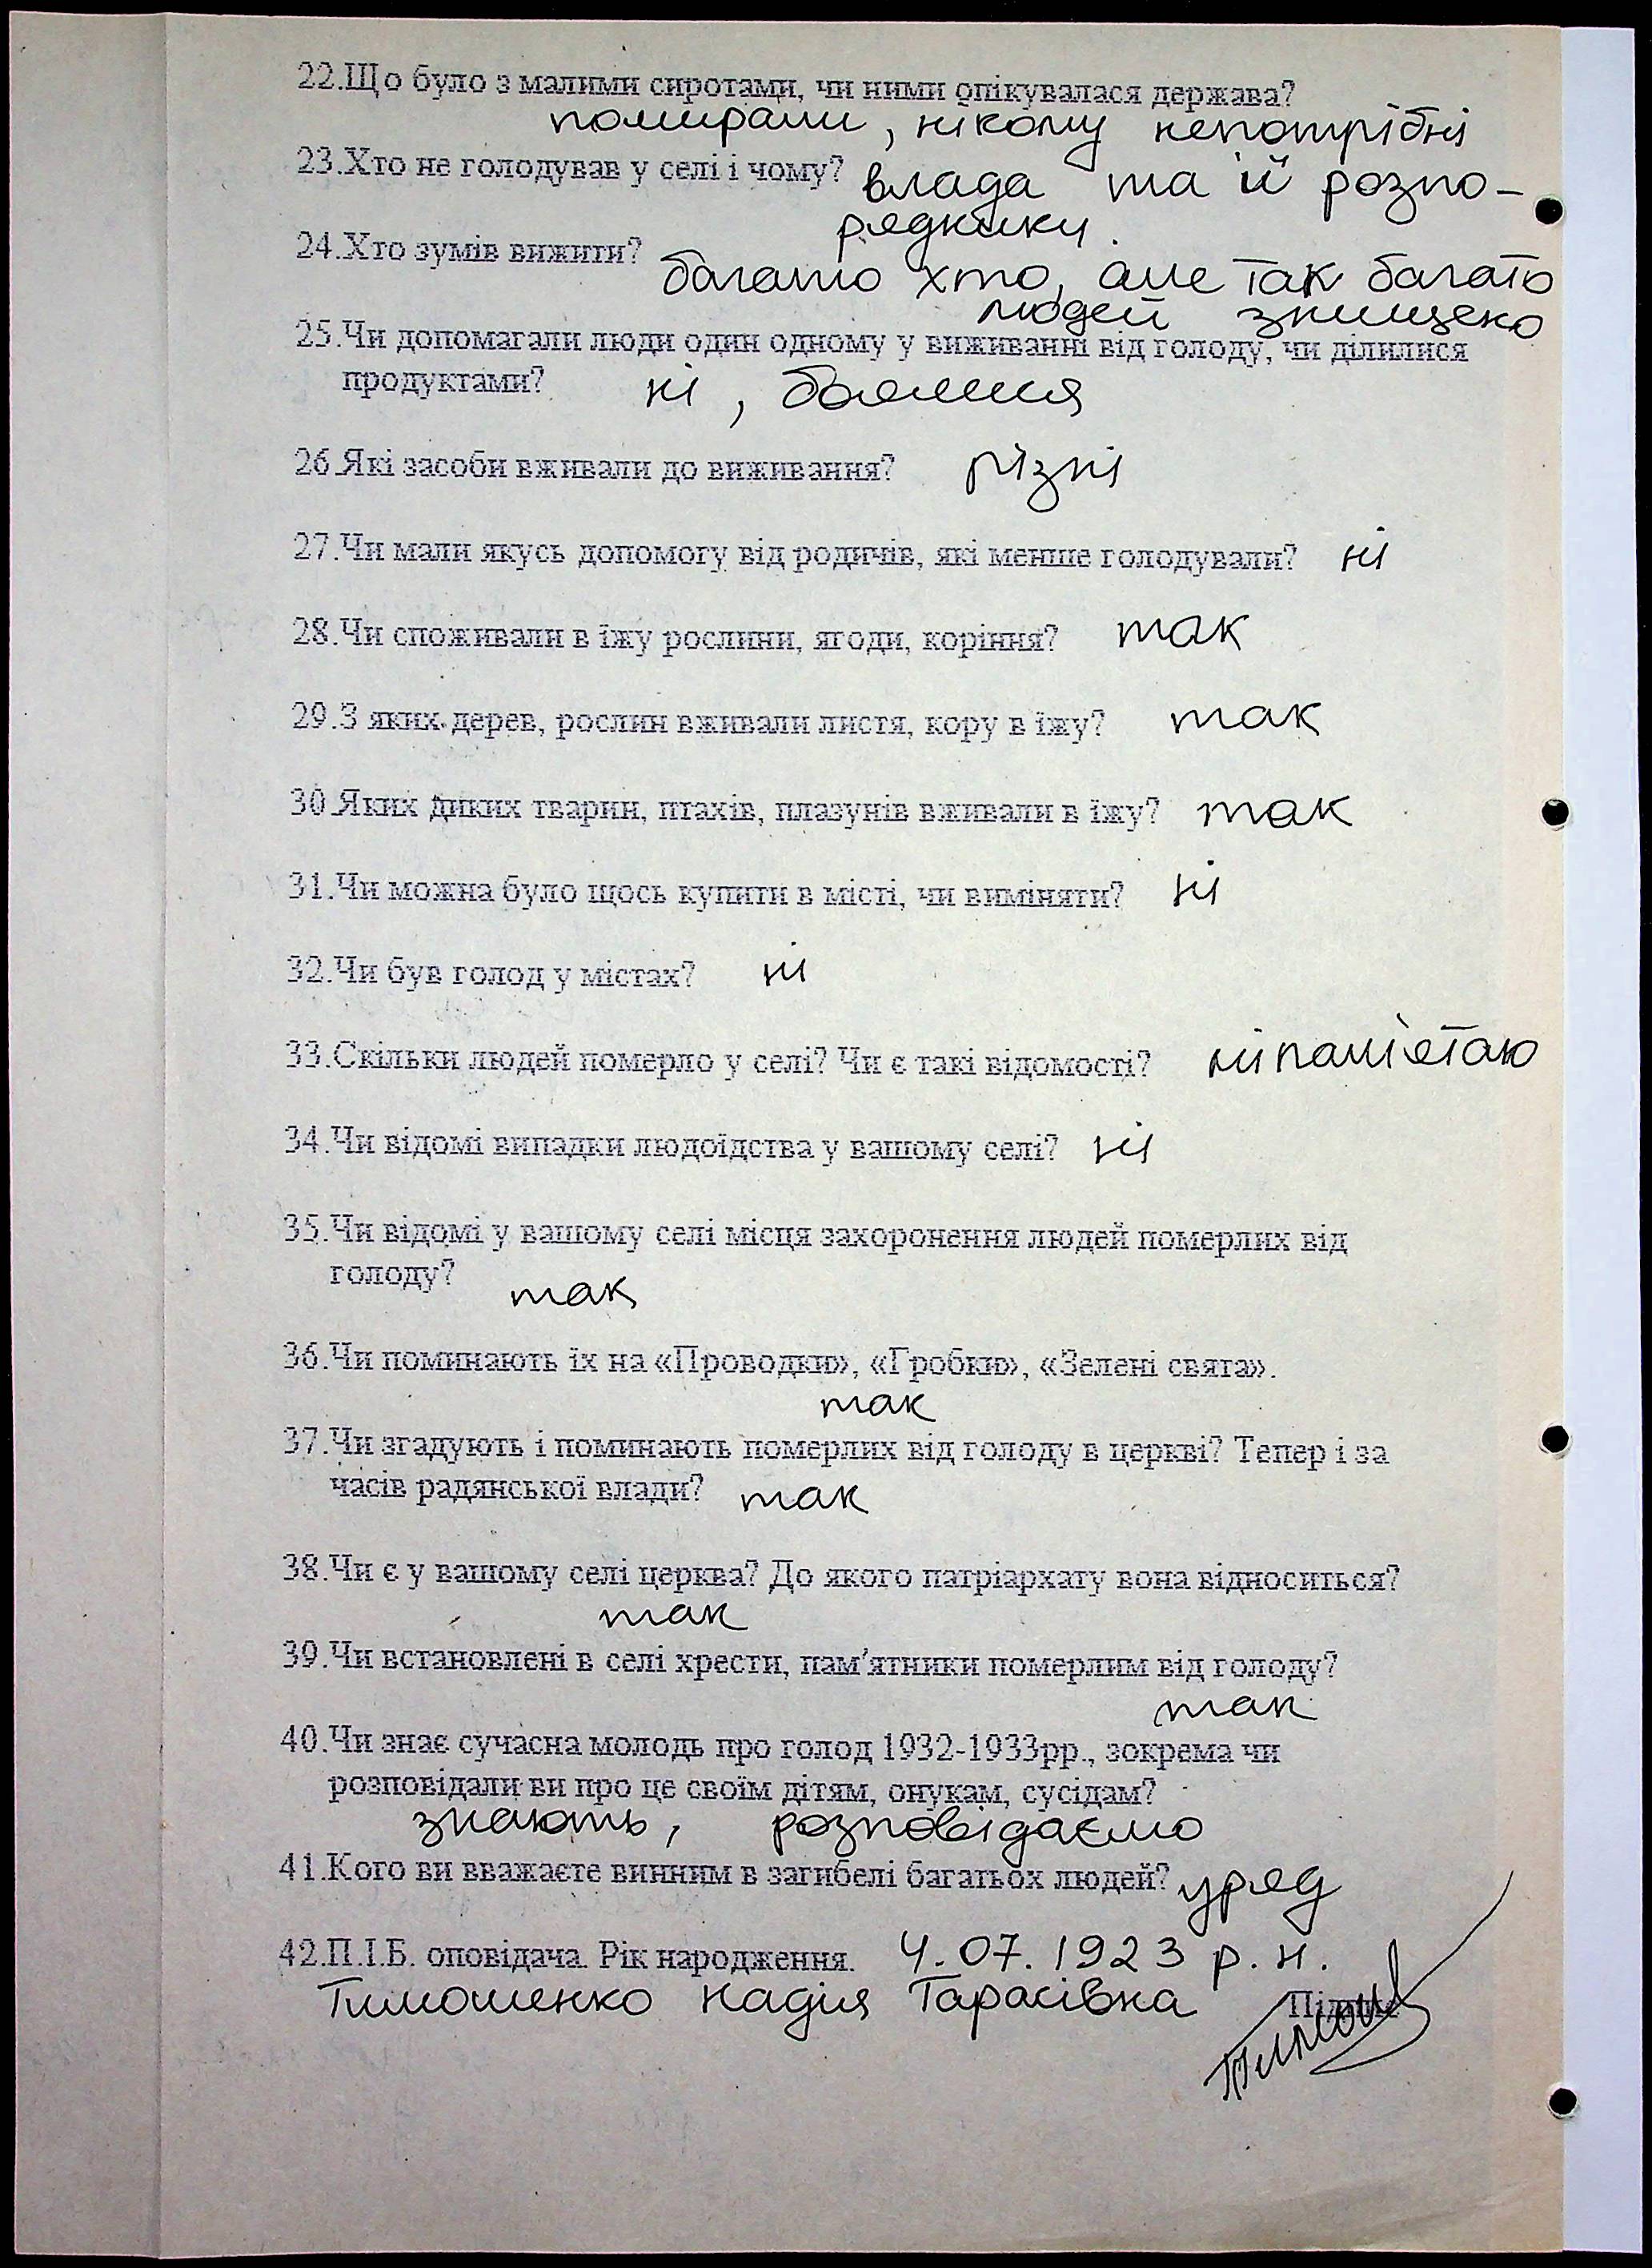 22.Що було з малими сиротами, чи ними опікувалася держава?
помирали, нікому непотрібні
23.Хто не голодував у селі і чому? влада та їй розпо-
рядники.
24.Хто зумів вижити? багато хто, але так багато
людей знищено
25.Чи допомагали люди один одному у виживанні від голоду, чи ділилися
продуктами? ні, боялися
26.Які засоби вживали до виживання? різні
27.Чи мали якусь допомогу від родичів, які менше голодували? ні
28.Чи споживали в їжу рослини, ягоди, коріння? так
29.З яких дерев, рослин вживали листя, кору в їжу? так
30.Яких диких тварин, птахів, плазунів вживали в їжу? так
31.Чи можна було щось купити в місті, чи виміняти? ні
32.Чи був голод у містах? ні
33.Скільки людей померло у селі? Чи є такі відомості? ні пам'ятаю
34.Чи відомі випадки людоїдства у вашому селі? ні
35.Чи відомі у вашому селі місця захоронення людей померлих від
голоду? так
36.Чи поминають їх на «Проводки», «Гробки», «Зелені свята».
так
37.Чи згадують і поминають померлих від голоду в церкві? Тепер і за
часів радянської влади? так
38.Чи є у вашому селі церква? До якого патріархату вона відноситься?
так
39.Чи встановлені в селі хрести, пам'ятники померлим від голоду?
так
40.Чи знає сучасна молодь про голод 1932-1933рр., зокрема чи
розповідали ви про це своїм дітям, онукам, сусідам?
знають, розповідаємо
41.Кого ви вважаєте винним в загибелі багатьох людей? уряд
42.П.І.Б. оповідача. Рік народження. 4.07.1923 р.н.
Тимошенко Надія Тарасівна Підпис
Тимош